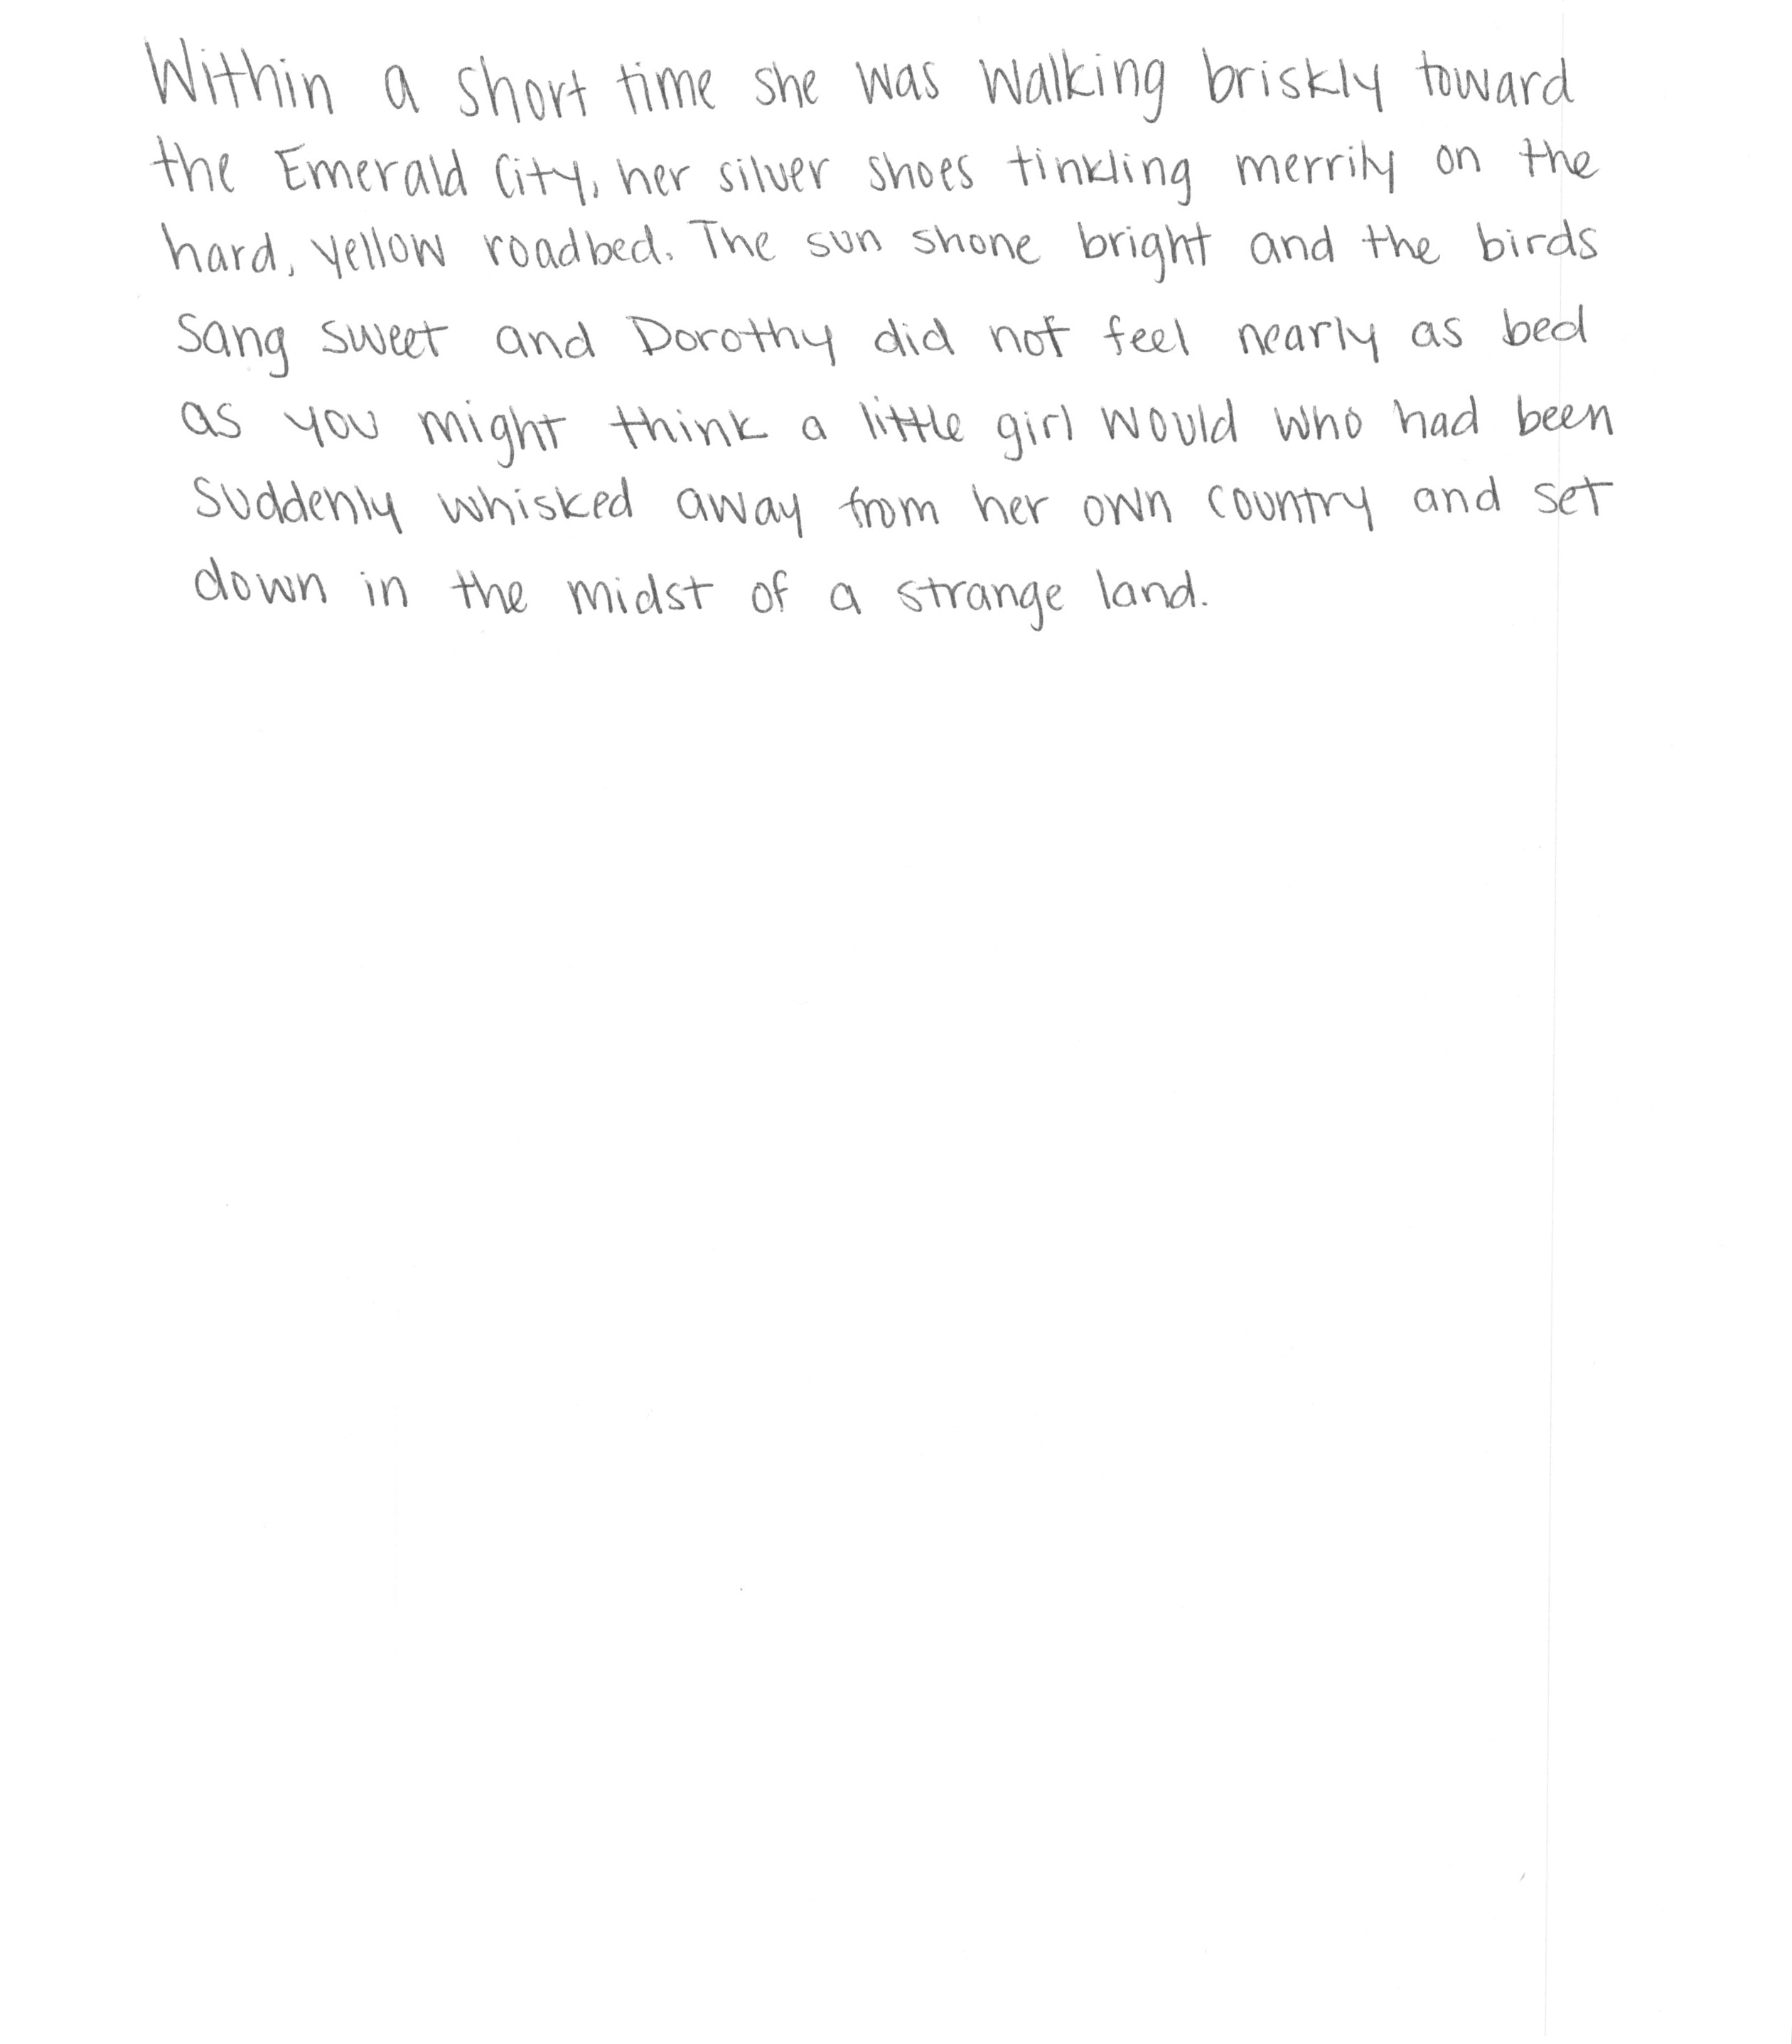 Within a short time she was walking briskly toward
the Emerald City, her silver shoes tinkling merrily on the
hard, yellow roadbed. The sun shone bright and the birds
sang sweet and Dorothy did not feel nearly as bed
as you might think a little girl would who had been
suddenly whisked away from her own country and set
down in the midst of a strange land.